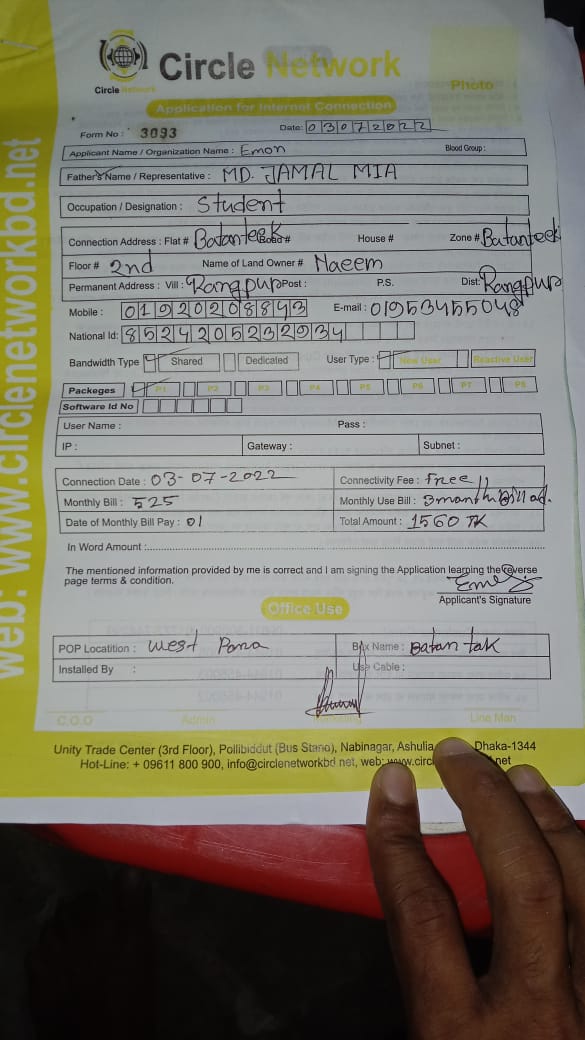 Circle Network
Circle Network
Photo
Application for Internet Connection
Form No : 3093
Date: 03072022
Applicant Name / Organization Name : Emon Blood Group :
Father's Name / Representative : MD. JAMAL MIA
Occupation / Designation : Student
Connection Address : Flat # Batanteek Road # House # Zone # Batanteek
Floor # 2nd Name of Land Owner # Naeem
Permanent Address : Vill : Rangpur Post : P.S. Dist: Rangpur
Mobile : 01920208843 E-mail : 01953455048
National Id: 8524205232934
Bandwidth Type Shared Dedicated User Type : New User Reactive User
Packeges P1 P2 P3 P4 P5 P6 P7 P8
Software Id No
User Name : Pass :
IP : Gateway : Subnet :
Connection Date : 03-07-2022 Connectivity Fee : Free
Monthly Bill : 525 Monthly Use Bill : 3 month Bill ad.
Date of Monthly Bill Pay : 01 Total Amount : 1560 TK
In Word Amount :
The mentioned information provided by me is correct and I am signing the Application learning the reverse
page terms & condition.
Applicant's Signature
Office Use
POP Locatition : West Para Box Name : Batan tak
Installed By : Use Cable :
C.O.O Admin Marketing Line Man
Unity Trade Center (3rd Floor), Pollibiddut (Bus Stand), Nabinagar, Ashulia Dhaka-1344
Hot-Line: + 09611 800 900, info@circlenetworkbd net, web: www.circ .net
web: www.circlenetworkbd.net